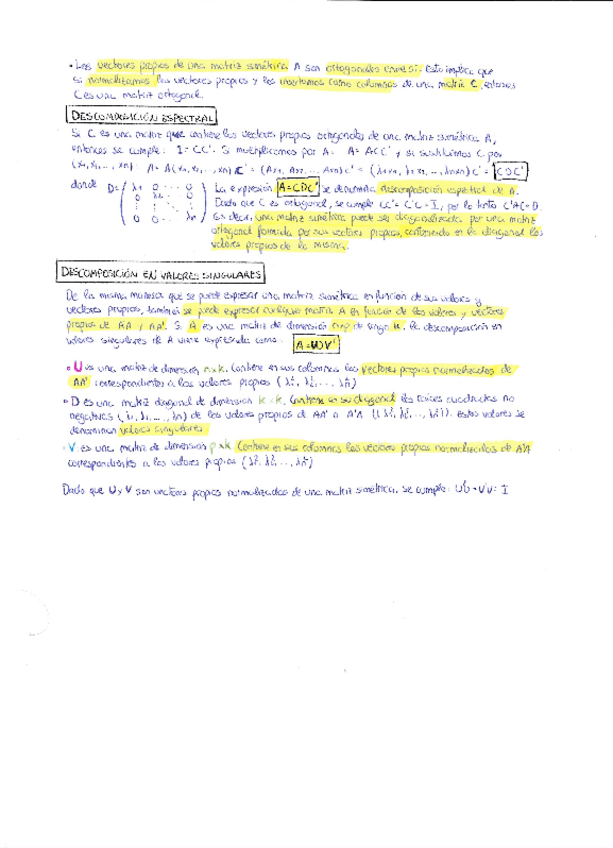 • Los vectores propios de una matriz simétrica A son ortogonales entre si. Esto implica que
si normalizamos los vectores propios y los insertamos como columnas de una matriz C, entonces
C es una matriz ortogonal.
DESCOMPOSICIÓN ESPECTRAL
Si C es una matriz que contiene los vectores propios ortogonales de una matriz simétrica A,
entonces se cumple: I = CC'. Si multiplicamos por A: A = ACC' y si sustituimos C por
(x1, x2, ..., xn): A = A(x1, x2, ..., xn)C' = (Ax1, Ax2, ..., Axn)C' = (λ1x1, λ2x2, ..., λnxn)C' = CDC'
donde D = La expresión A=CDC' se denomina descomposición espectral de A.
Dado que C es ortogonal, se cumple CC' = C'C = I, por lo tanto C'AC = D.
Es decir, una matriz simétrica puede ser diagonalizada por una matriz
ortogonal formada por sus vectores propios, conteniendo en la diagonal los
valores propios de la misma.
DESCOMPOSICIÓN EN VALORES SINGULARES
De la misma manera que se puede expresar una matriz simétrica en función de sus valores y
vectores propios, también se puede expresar cualquier matriz A en función de los valores y vectores
propios de A'A y AA'. Si A es una matriz de dimensión nxp de rango k, la descomposición en
valores singulares de A viene expresada como: A = UDV'
• U es una matriz de dimensión n x k. Contiene en sus columnas los vectores propios normalizados de
AA' correspondientes a los valores propios (λ1², λ2², ..., λk²)
• D es una matriz diagonal de dimensión k x k. Contiene en su diagonal las raíces cuadradas no
negativas de los valores propios de AA' o A'A. Estos valores se
denominan valores singulares
• V es una matriz de dimensión p x k. Contiene en sus columnas los vectores propios normalizados de A'A
correspondientes a los valores propios (λ1², λ2², ..., λk²)
Dado que U y V son vectores propios normalizados de una matriz simétrica, se cumple: U'U = V'V = I